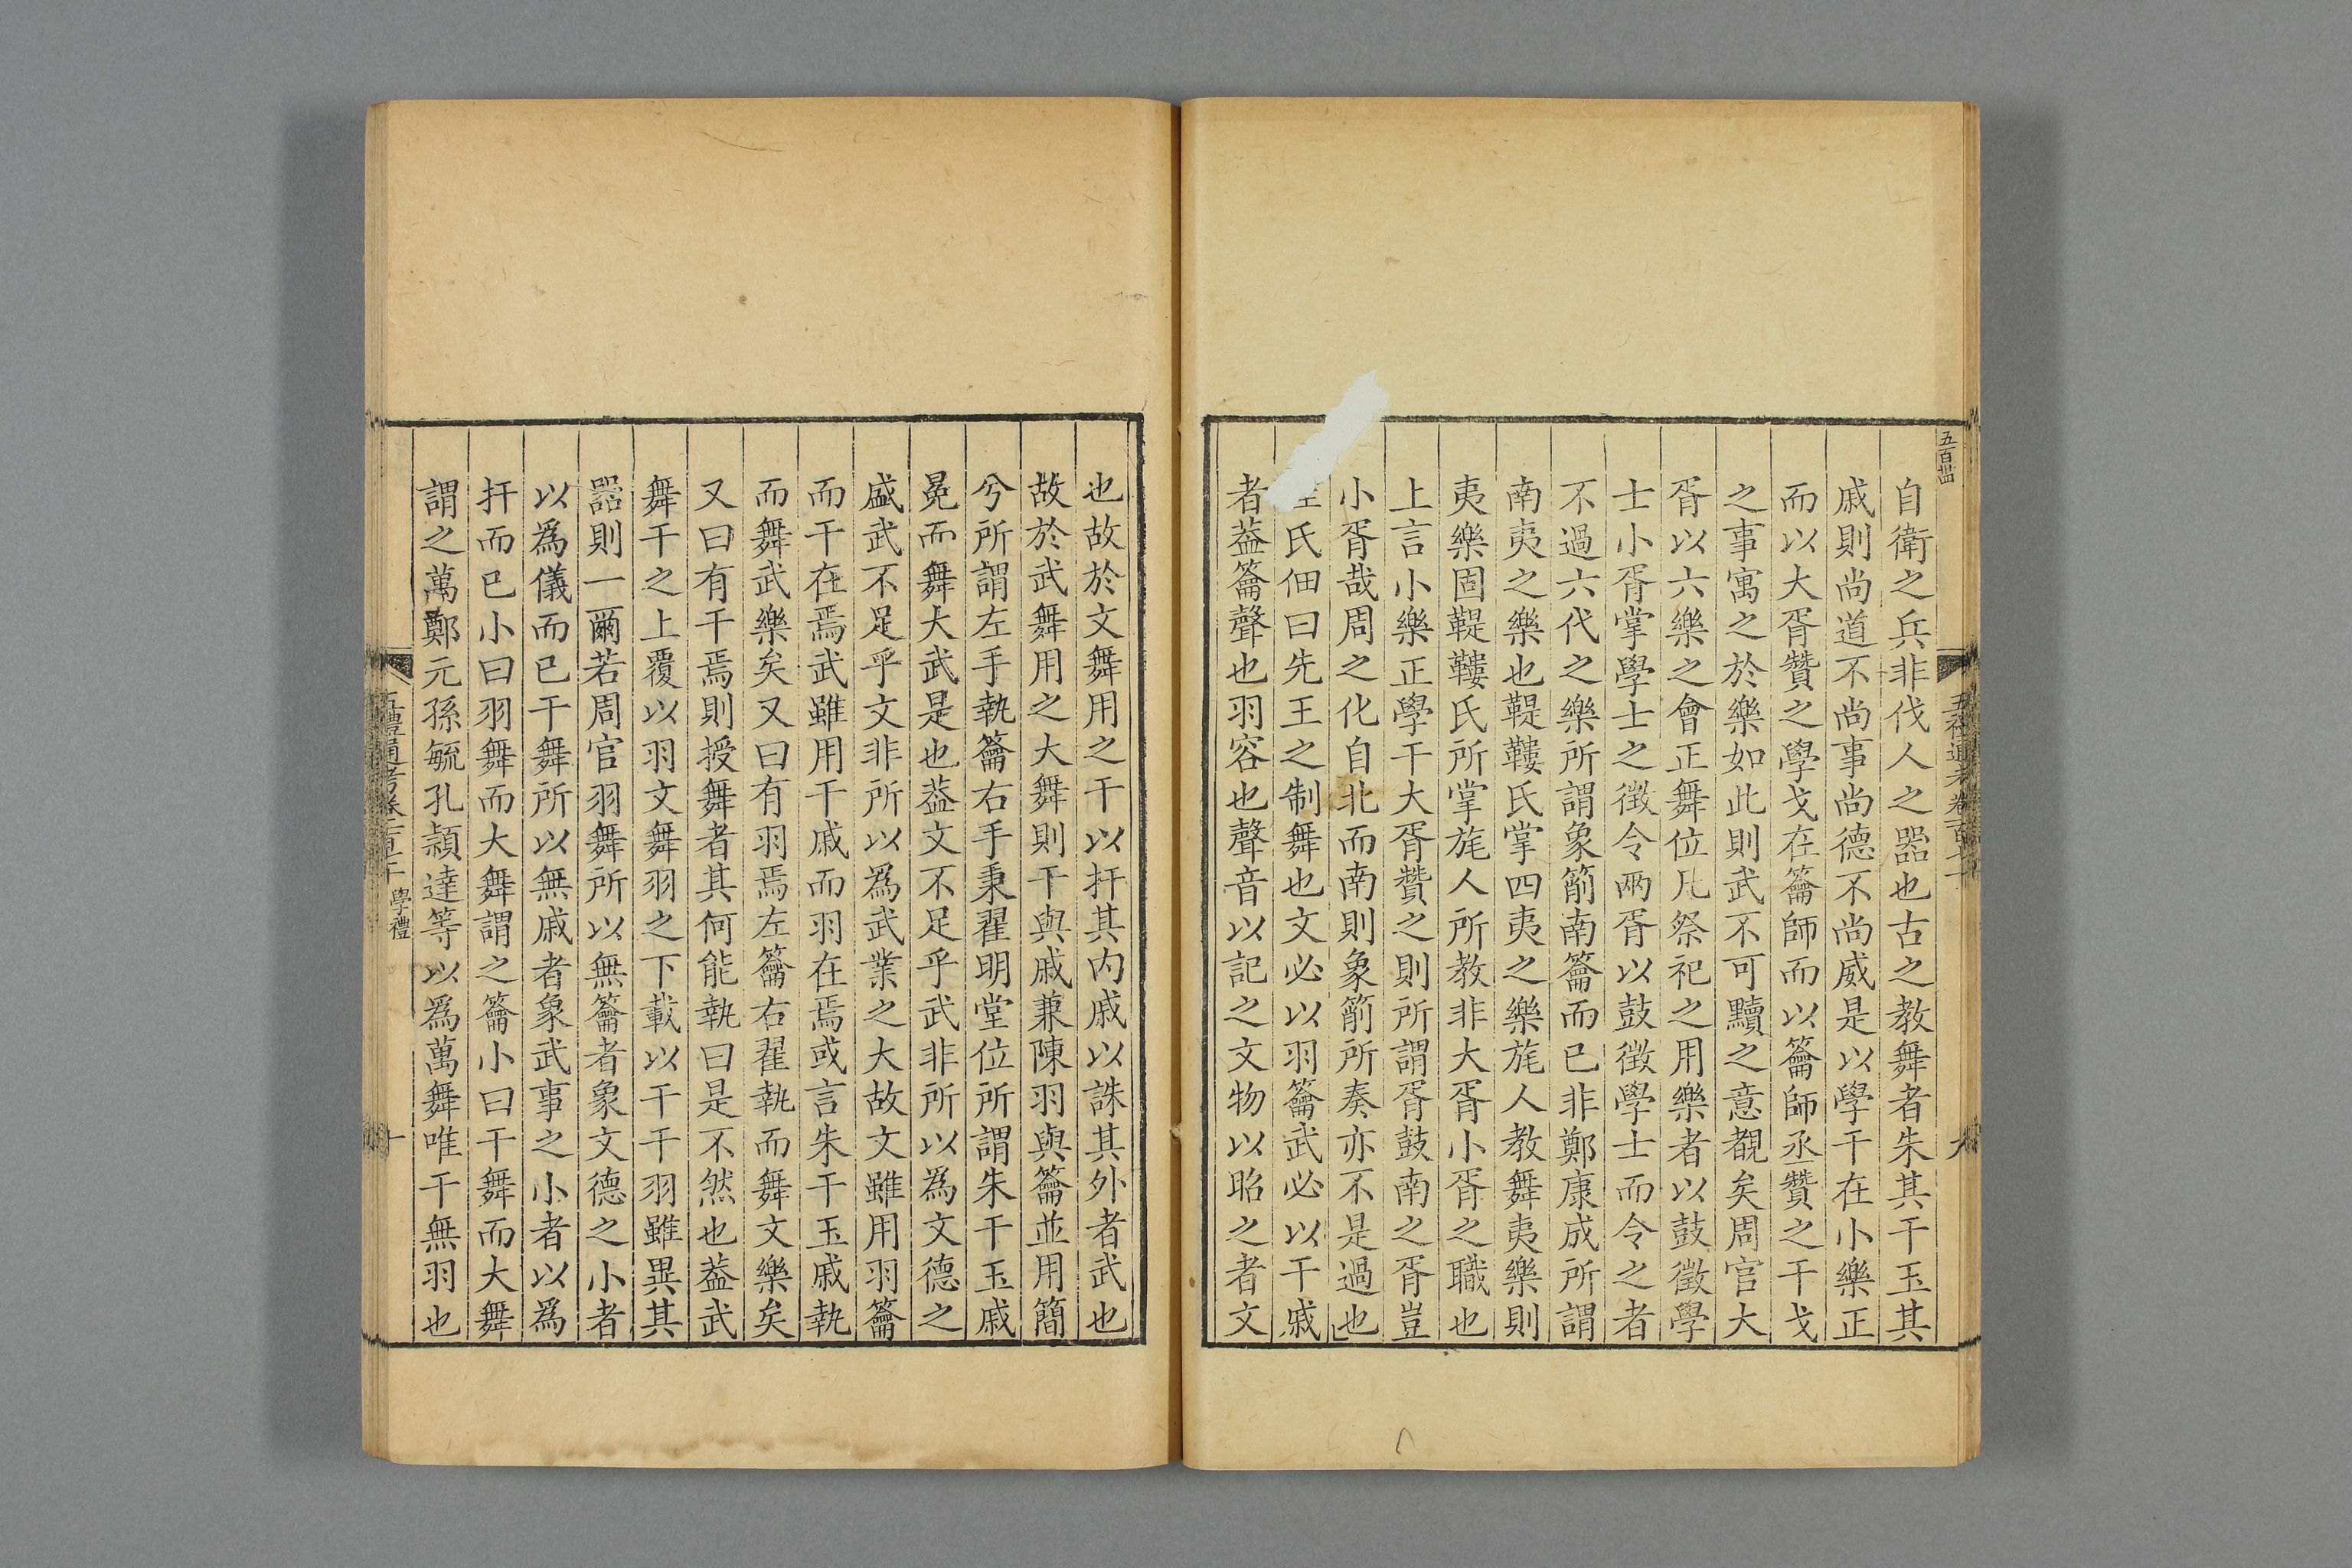 五百卌
自衛之兵非伐人之器也古之教舞者朱其干玉其
戚則尚道不尚事尚德不尚威是以學干在小樂正
而以大胥贊之學戈在籥師而以籥師丞贊之干戈
之事寓之於樂如此則武不可黷之意覩矣周官大
胥以六樂之會正舞位凡祭祀之用樂者以鼓徵學
士小胥掌學士之徵令兩胥以鼓徵學士而令之者
不過六代之樂所謂象箾南籥而已非鄭康成所謂
南夷之樂也鞮鞻氏掌四夷之樂旄人教舞夷樂則
夷樂固鞮鞻氏所掌旄人所教非大胥小胥之職也
上言小樂正學干大胥贊之則所謂胥鼓南之胥豈
小胥哉周之化自北而南則象箾所奏亦不是過也
氏佃曰先王之制舞也文必以羽籥武必以干戚
者葢籥聲也羽容也聲音以記之文物以昭之者文
也故於文舞用之干以扞其內戚以誅其外者武也
故於武舞用之大舞則干與戚兼陳羽與籥並用簡
兮所謂左手執籥右手秉翟明堂位所謂朱干玉戚
冕而舞大武是也葢文不足乎武非所以為文德之
盛武不足乎文非所以為武業之大故文雖用羽籥
而干在焉武雖用干戚而羽在焉或言朱干玉戚執
而舞武樂矣又曰有羽焉左籥右翟執而舞文樂矣
又曰有干焉則授舞者其何能執曰是不然也葢武
舞干之上覆以羽文舞羽之下載以干干羽雖異其
器則一爾若周官羽舞所以無籥者象文德之小者
以為儀而已干舞所以無戚者象武事之小者以為
扞而已小曰羽舞而大舞謂之籥小曰干舞而大舞
謂之萬鄭元孫毓孔穎達等以為萬舞唯干無羽也
學禮